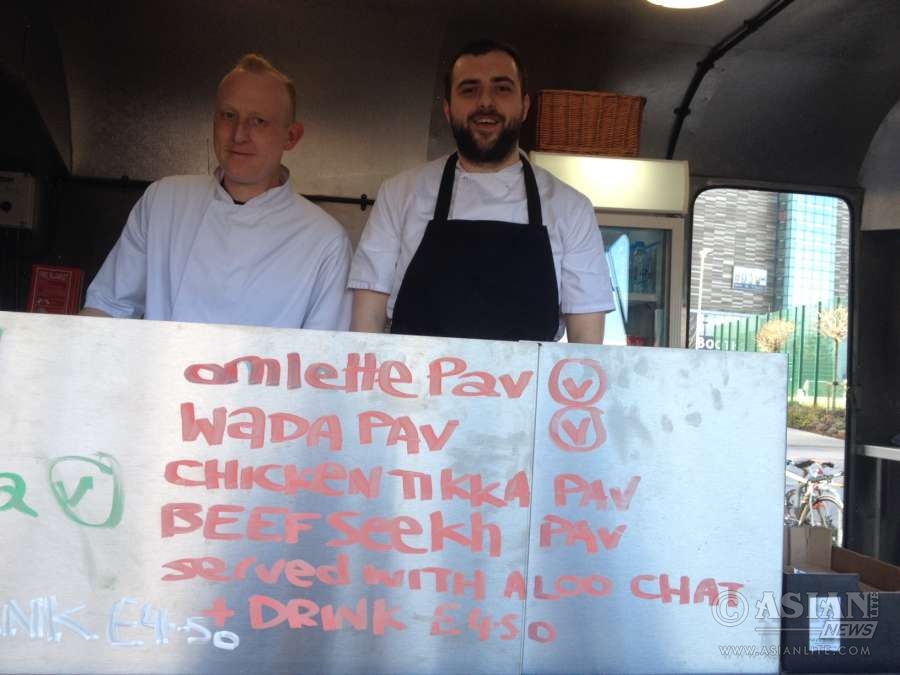 omlette Pav V
WADA PAV V
a V
CHICKEN TIKKA PAV
BEEF Seekh PAV
served WITH ALOO CHAT
+ DRINK £4.50
£4.50
BOOTH
© ASIAN LITE
NEWS
WWW.ASIANLITE.COM